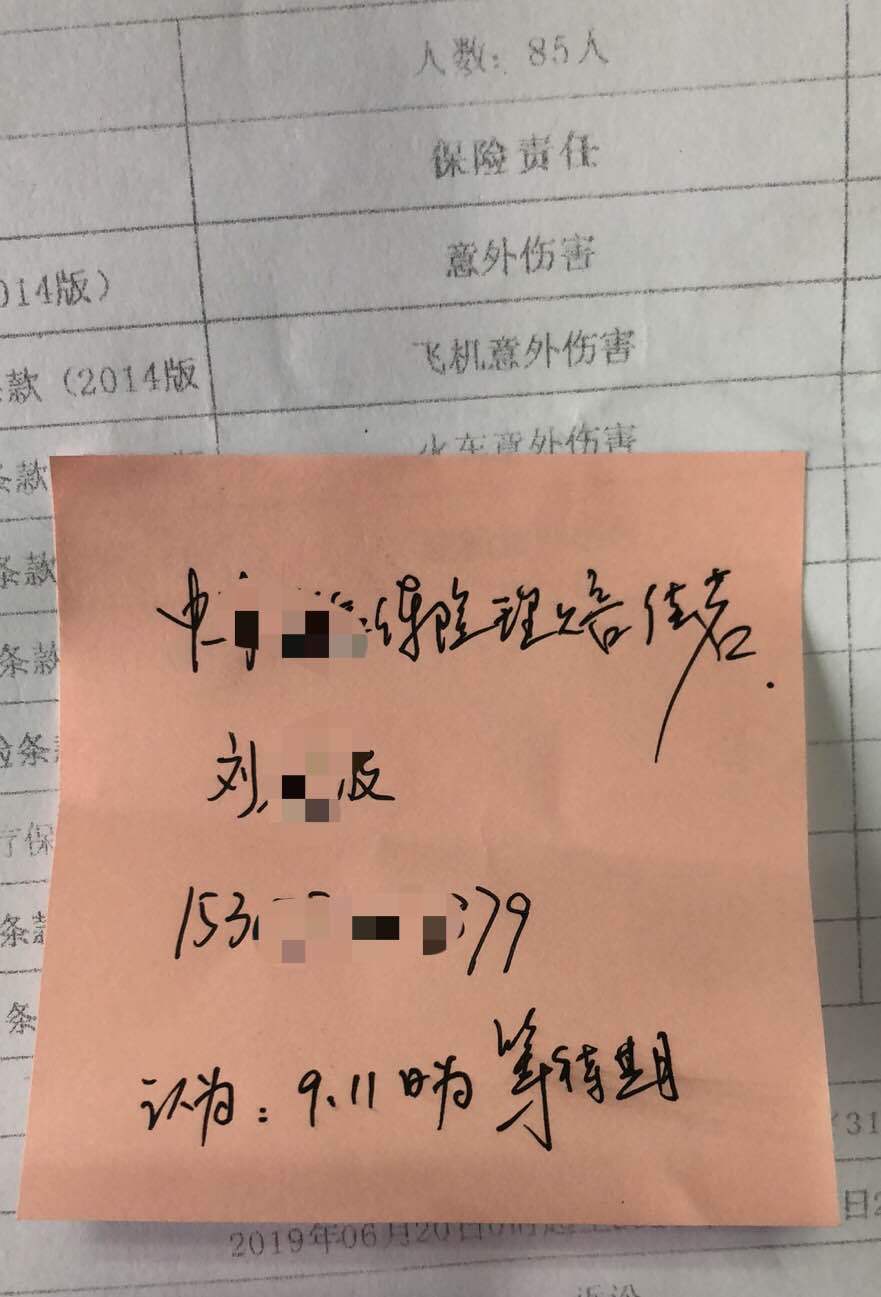 人数：85人
保险责任
意外伤害
014版）
飞机意外伤害
条款（2014版
火车意外伤害
条款
条款
条款
险条
疗保
条款
条
中 保险理赔
刘 波
153 79
认为：9.11日为等待期
（31
2019年06月20日0时起
日2
诉讼